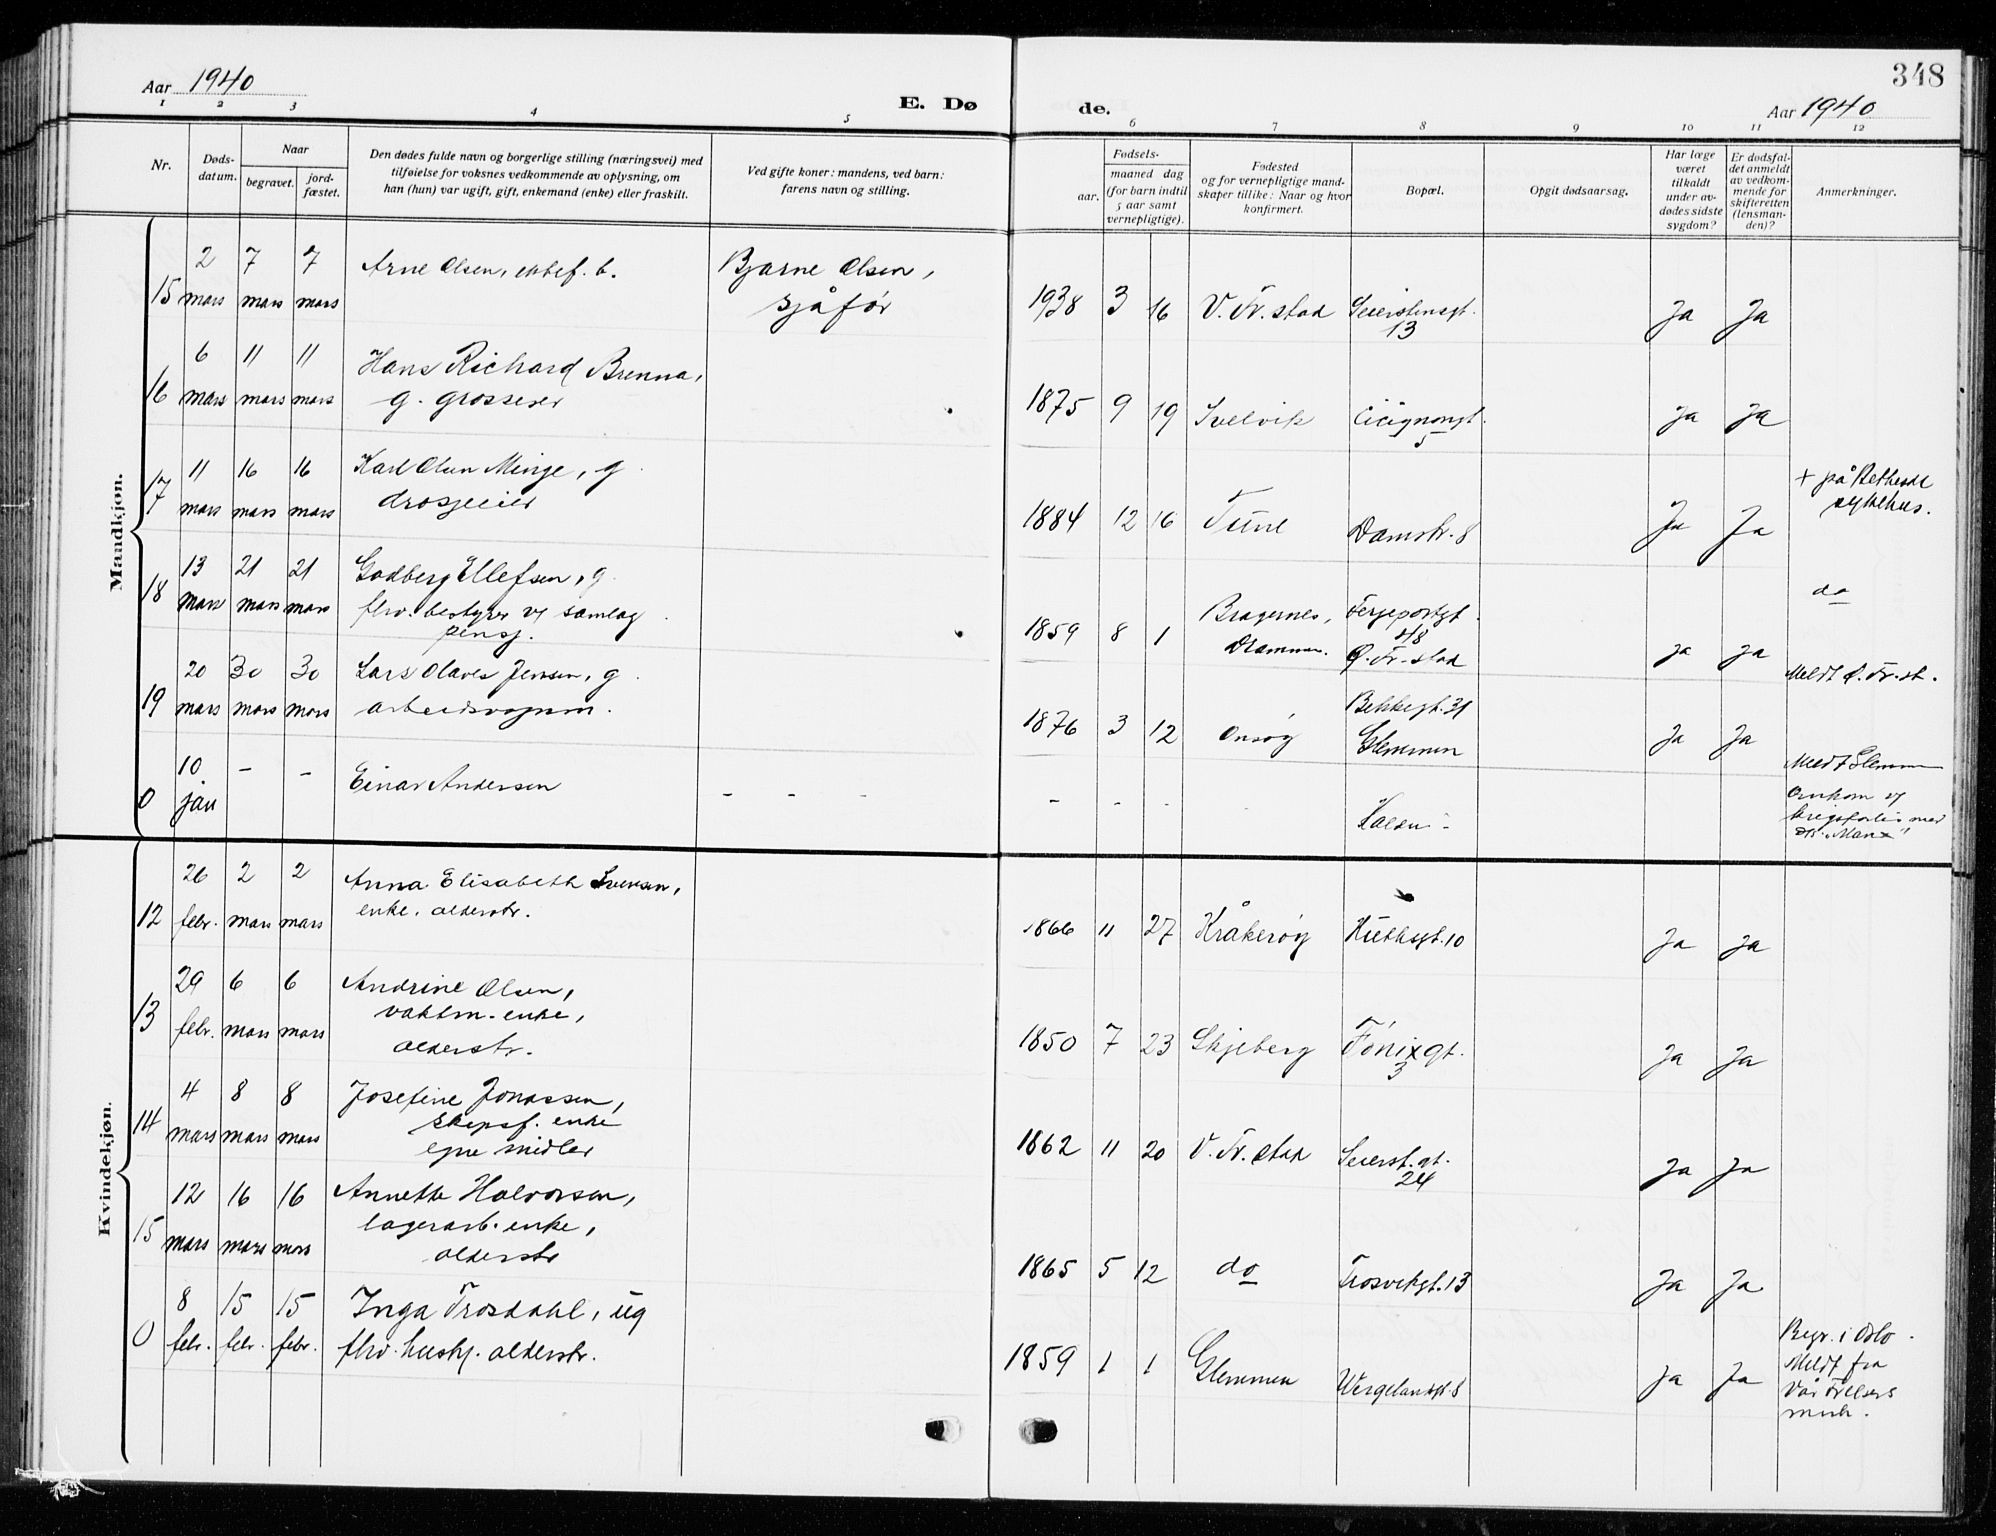 348
Aar 1940
E. Dø
de.
Aar 1940
1 2 3 4 5 6 7 8 9 10 11 12
Nr.
Døds-
datum.
Naar
begravet.
jord-
fæstet.
Den dødes fulde navn og borgerlige stilling (næringsvei) med
tilføielse for voksnes vedkommende av oplysning, om
han (hun) var ugift, gift, enkemand (enke) eller fraskilt.
Ved gifte koner: mandens, ved barn:
farens navn og stilling.
Fødsels-
aar.
maaned dag
(for barn indtil
5 aar samt
vernepligtige).
Fødested
og for vernepligtige mand-
skaper tillike: Naar og hvor
konfirmert.
Bopæl.
Opgit dødsaarsag.
Har læge
været
tilkaldt
under av-
dødes sidste
sygdom?
Er dødsfal-
det anmeldt
av vedkom-
mende for
skifteretten
(lensman-
den)?
Anmerkninger.
Mandkjøn.
15 2 mars 7 mars 7 mars Arne Olsen, ektef. b. Bjarne Olsen,
sjåfør
1938 3 16 V. Fr. stad Seierstensgt.
13
Ja Ja
16 6 mars 11 mars 11 mars Hans Richard Brenna,
g. grosserer
1875 9 19 Svelvik Cicignongt.
5
Ja Ja
17 11 mars 16 mars 16 mars Karl Olsen Minge, g
drosjeeier
1884 12 16 Tune Damstr. 8 Ja Ja
+ på Bethesda
sykehus.
18 13 mars 21 mars 21 mars Godberg Ellefsen, g.
fhv. bestyrer v/ samlag
pensj.
1859 8 1 Bragernes,
Drammen.
Fergeportgt.
Ø. Fr. stad
Ja Ja
do
Meldt Ø. Fr. st.
19 20 mars 30 mars 30 mars Lars Olaves Jensen, g
arbeidsvognm.
1876 3 12 Onsøy Bekkegt. 31
Glemmen
Ja Ja
Meldt Glemmen
0 10 jan - - Einar Andersen - - -
- - - - Halden -
Omkom v/
krigsforlis med
Kvindekjøn.
12 26 febr. 2 mars 2 mars Anna Elisabeth Svensen,
enke. alderstr.
1866 11 27 Kråkerøy Huthsgt. 10 Ja Ja
13 29 febr. 6 mars 6 mars Andrine Olsen,
vaktm. enke,
alderstr.
1850 7 23 Skjeberg Fønixgt.
3
Ja Ja
14 4 mars 8 mars 8 mars Josefine Jonassen,
skipsf. enke
egne midler
1862 11 20 V. Fr. stad Seierst. gt.
24
Ja Ja
15 12 mars 16 mars 16 mars Annette Halvorsen,
lagerarb. enke,
alderstr
1865 5 12 do Trosvikgt. 13 Ja Ja
0 8 febr. 15 febr. 15 febr. Inga Trosdahl, ug
fhv. hushj. alderstr.
1859 1 1 Glemmen Wergelandsgt. 8 Ja Ja
Begr. i Oslo.
Meldt fra
Vår Frelsers
menh.